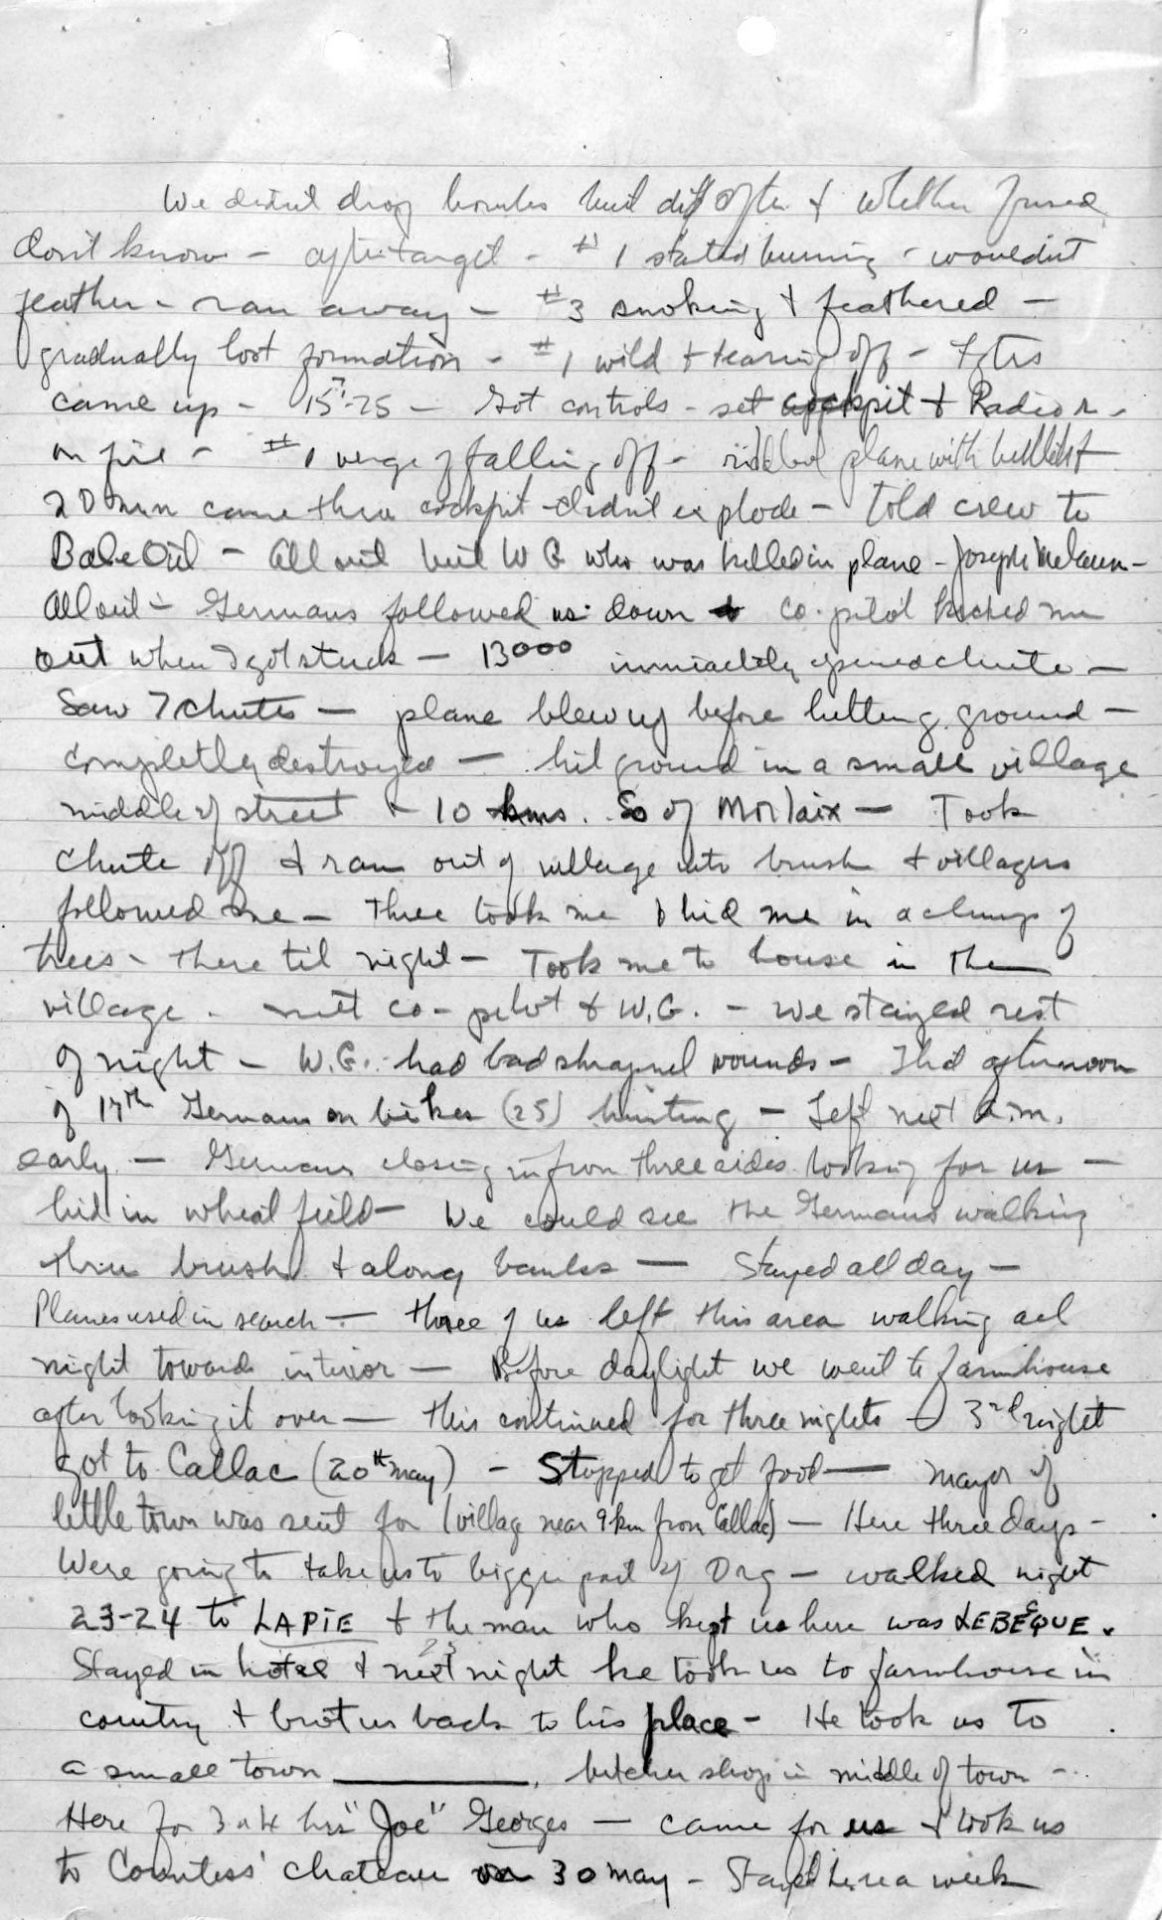 We didn't drop bombs but did after & whether fused
don't know - after target - #1 started burning - wouldn't
feather - ran away - #3 smoking & feathered -
gradually lost formation - #1 wild & tearing off - Ftrs
came up - 15-25 - Got controls - set cockpit & Radio r.
on fire - #1 verge of falling off - riddled plane with bullets
20 mm came thru cockpit - didn't explode - Told crew to
Bale Out - All out but W G who was killed in plane - Joseph
All out - Germans followed us down co-pilot kicked me
out when I got stuck - 13000 immiactely opened chute -
Saw 7 chutes - plane blew up before hitting ground -
completly destroyed - hit ground in a small village
middle of street - 10 kms. So of Morlaix - Took
chute off & ran out of village into brush & villagers
followed me - Three took me & hid me in a clump of
trees - there til night - Took me to house in the
village - met co-pilot & W.G. - we stayed rest
of night - W.G. had bad shrapnel wounds - afternoon
of 17th Germans on bikes (25) hunting - Left next a.m.
early - Germans closing in from three sides looking for us -
hid in wheat field - We could see the Germans walking
thru brush & along banks - Stayed all day -
Planes used in search - three of us left this area walking all
night towards interior - Before daylight we went to farmhouse
after looking it over - this continued for three nights - 3rd night
got to Callac (20th may) - Stopped to get food - mayor of
little town was sent for (village near 9 km from Callac) - Here three days -
Were going to take us to bigger part of Org - walked night
23-24 to LAPIE & the man who kept us here was LEBEQUE.
Stayed in hotel & next night he took us to farmhouse in
country & brot us back to his place - He took us to
a small town ________, butcher shop in middle of town -
Here for 3 or 4 hrs "Joe" Georges - came for us & took us
to Countess' chateau on 30 may - Stayed here a week